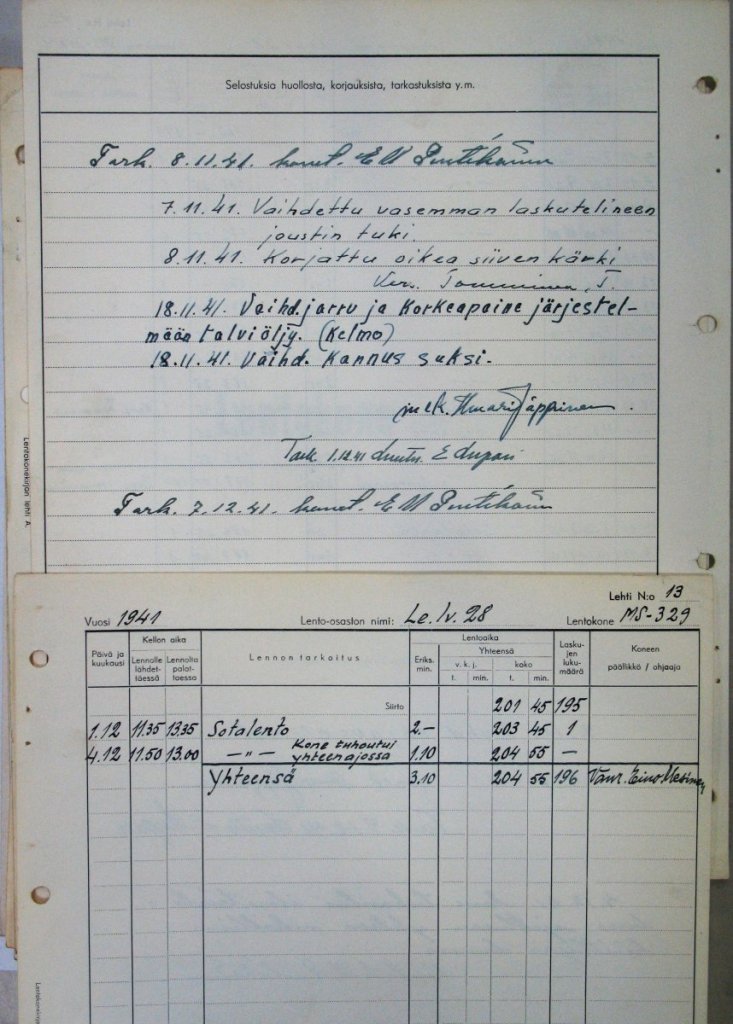 Selostuksia huollosta, korjauksista, tarkastuksista y.m.
Tark. 8.11.41. E V Penttikäinen
7.11.41. Vaihdettu vasemman laskutelineen
joustin tuki.
8.11.41. Korjattu oikea siiven kärki
Kers. Tomminen, T.
18.11.41. Vaihd. jarru ja Korkeapaine järjestel-
mään talviöljy. (Kelmo)
18.11.41. Vaihd. Kannus suksi.
mek. Ilmari Jäppinen.
Tark 1.12.41
Tark. 7.12.41.
Lentokonekirjan lehti A.
Lehti N:o 13
Vuosi 1941 Lento-osaston nimi: Le.lv. 28 Lentokone MS-329
Päivä ja kuukausi Kellon aika Lennolle lähdettäessä Lennolta palattaessa Lennon tarkoitus Lentoaika Eriks. min. Yhteensä v. k. j. t. min. koko t. min. Laskujen lukumäärä Koneen päällikkö / ohjaaja
Siirto 201 45 195
1.12 11.35 13.35 Sotalento 2.— 203 45 1
4.12 11.50 13.00 —„— Kone tuhoutui yhteenajossa 1.10 204 55 —
Yhteensä 3.10 204 55 196 Vänr. Eino